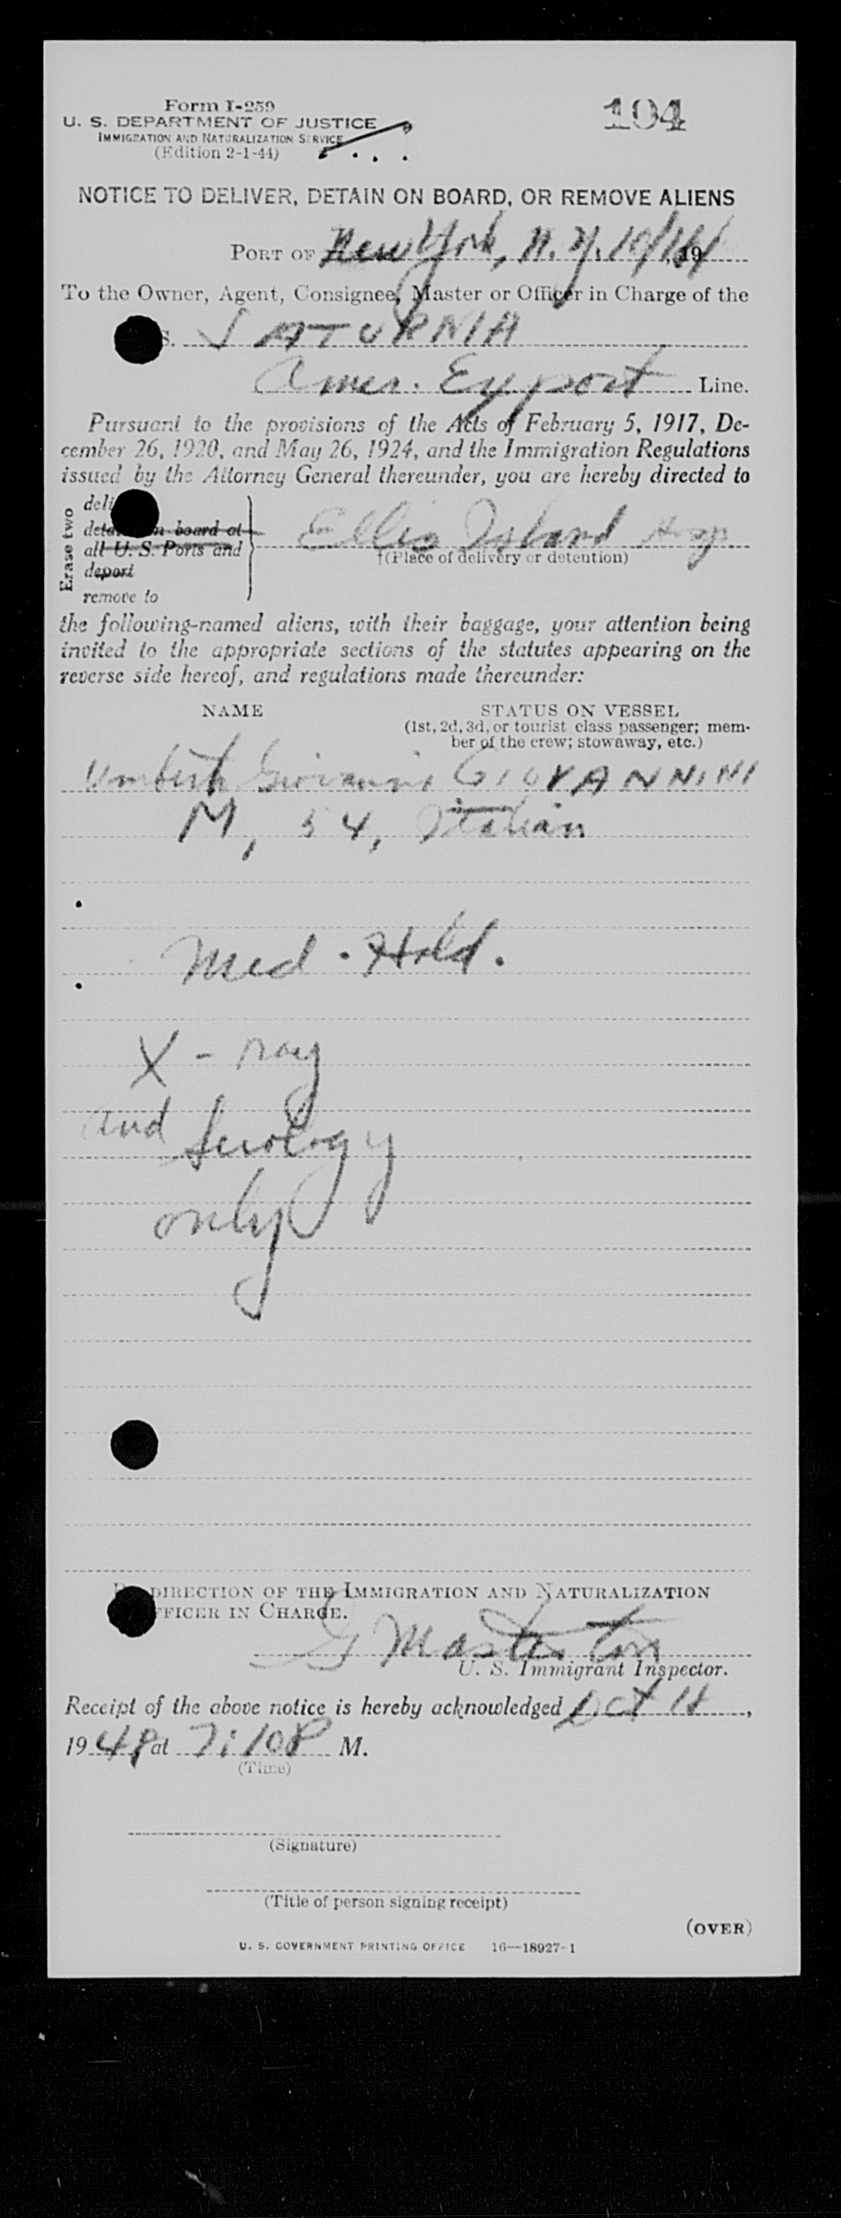 Form I-259
104
U. S. DEPARTMENT OF JUSTICE
IMMIGRATION AND NATURALIZATION SERVICE
(Edition 2-1-44)
NOTICE TO DELIVER, DETAIN ON BOARD, OR REMOVE ALIENS
PORT OF New York, N. Y. 10/ , 19
To the Owner, Agent, Consignee, Master or Officer in Charge of the
S. SATURNIA
Amer. Export Line.
Pursuant to the provisions of the Acts of February 5, 1917, De-
cember 26, 1920, and May 26, 1924, and the Immigration Regulations
issued by the Attorney General thereunder, you are hereby directed to
Erase two
deli
deta n board at
all U. S. Ports and
deport
remove to
Ellis Island
†(Place of delivery or detention)
the following-named aliens, with their baggage, your attention being
invited to the appropriate sections of the statutes appearing on the
reverse side hereof, and regulations made thereunder:
NAME STATUS ON VESSEL
(1st, 2d, 3d, or tourist class passenger; mem-
ber of the crew; stowaway, etc.)
Umberto Giovanni GIOVANNINI
M, 54, Italian
Med. Hold.
X-ray
and Serology
only
DIRECTION OF THE IMMIGRATION AND NATURALIZATION
FFICER IN CHARGE.
G Masterton
U. S. Immigrant Inspector.
Receipt of the above notice is hereby acknowledged Oct ,
19 48 at 7:10 P M.
(Time)
(Signature)
(Title of person signing receipt)
(OVER)
U. S. GOVERNMENT PRINTING OFFICE 16—18927-1